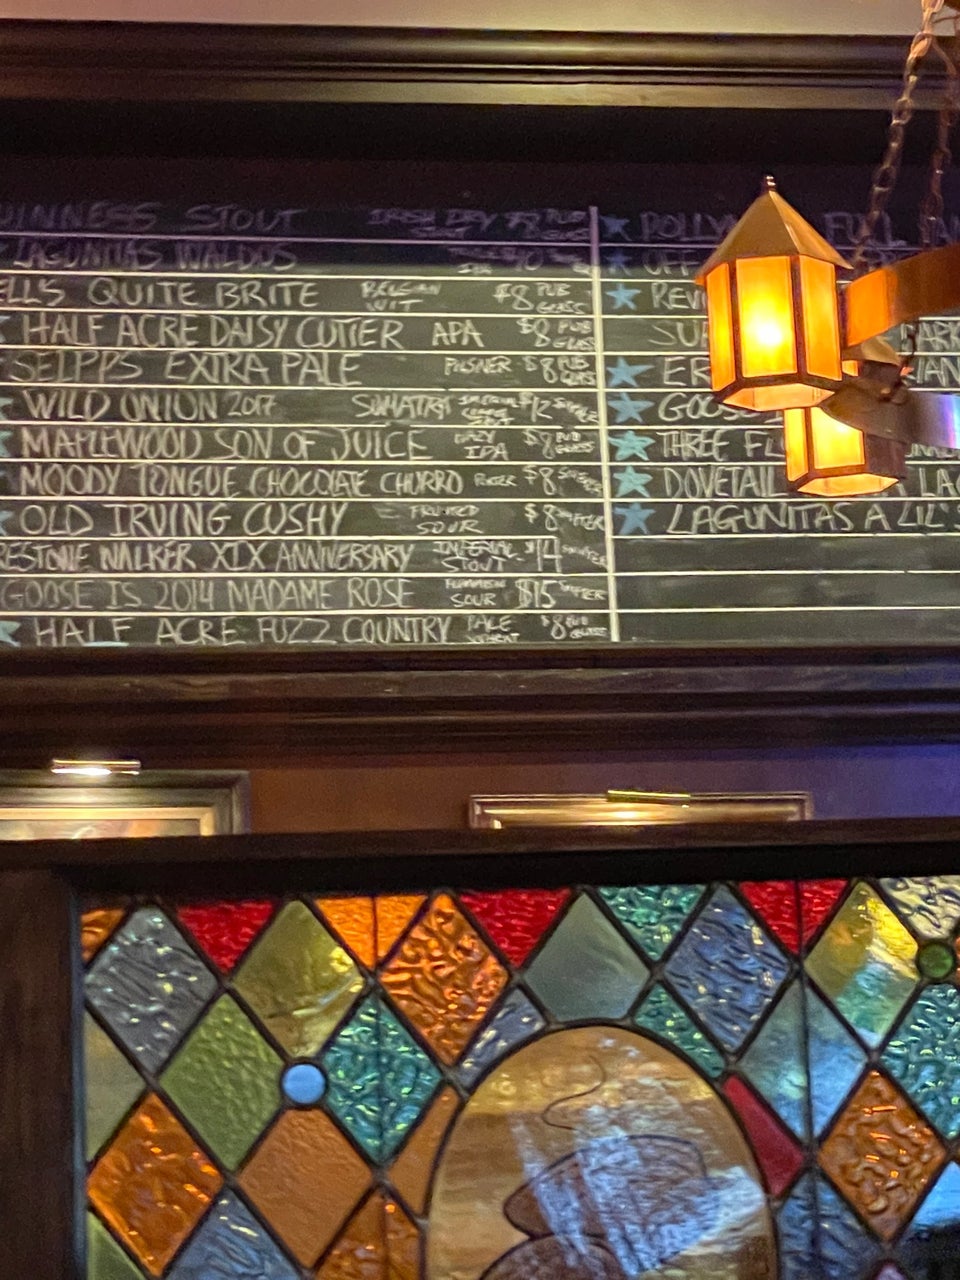 UINNESS STOUT IRISH DRY STOUT PUB GLASS
LAGUNITAS WALDOS IPA
ELL'S QUITE BRITE BELGIAN WIT $8 PUB GLASS
HALF ACRE DAISY CUTTER APA $8 PUB GLASS
SEIPPS EXTRA PALE PILSNER $8 PUB GLASS
WILD ONION 2017 SUMATRA IMPERIAL STOUT $12 SNIFTER
MAPLEWOOD SON OF JUICE HAZY IPA $8 PUB GLASS
MOODY TONGUE CHOCOLATE CHURRO PORTER $8 SNIFTER
OLD IRVING CUSHY FRUITED SOUR $8 SNIFTER
RESTONE WALKER XIX ANNIVERSARY IMPERIAL STOUT $14 SNIFTER
GOOSE IS 2014 MADAME ROSE FLEMISH SOUR $15 SNIFTER
HALF ACRE FUZZ COUNTRY PALE $8 PUB GLASS
POLLY FULL
OFF
REV
SU BARK
ER IAN
GOOS
THREE FL
DOVETAIL LA
LAGUNITAS A LIL'